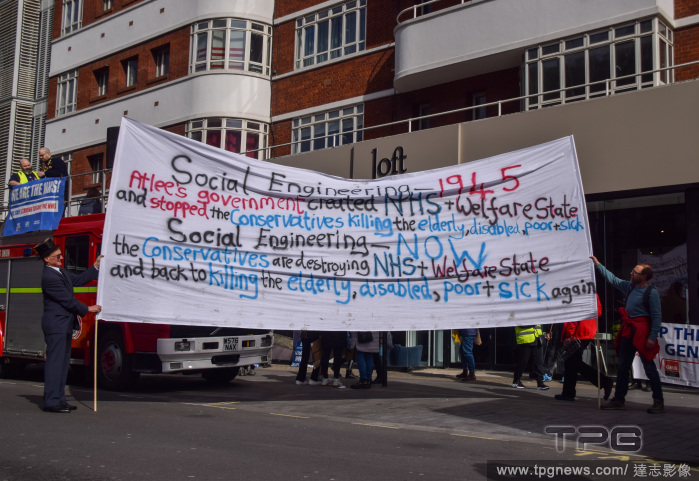 loft
WE ARE THE NHS!
Social Engineering – 1945
Atlee's government created NHS + Welfare State
and stopped the Conservatives killing the elderly, disabled, poor + sick
Social Engineering – NOW
the Conservatives are destroying NHS + Welfare State
and back to killing the elderly, disabled, poor + sick again
W576
NAX
TPG
www.tpgnews.com / 達志影像